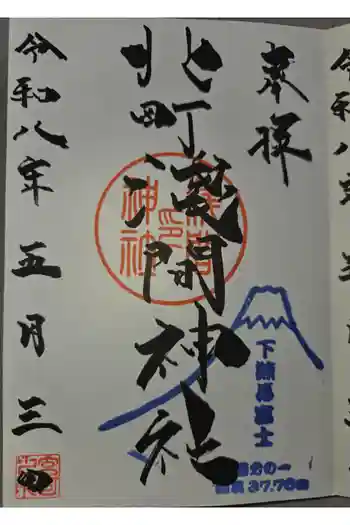 奉拝
北町浅間神社
令和八年五月三日
下練馬富士
分の一
37.76m